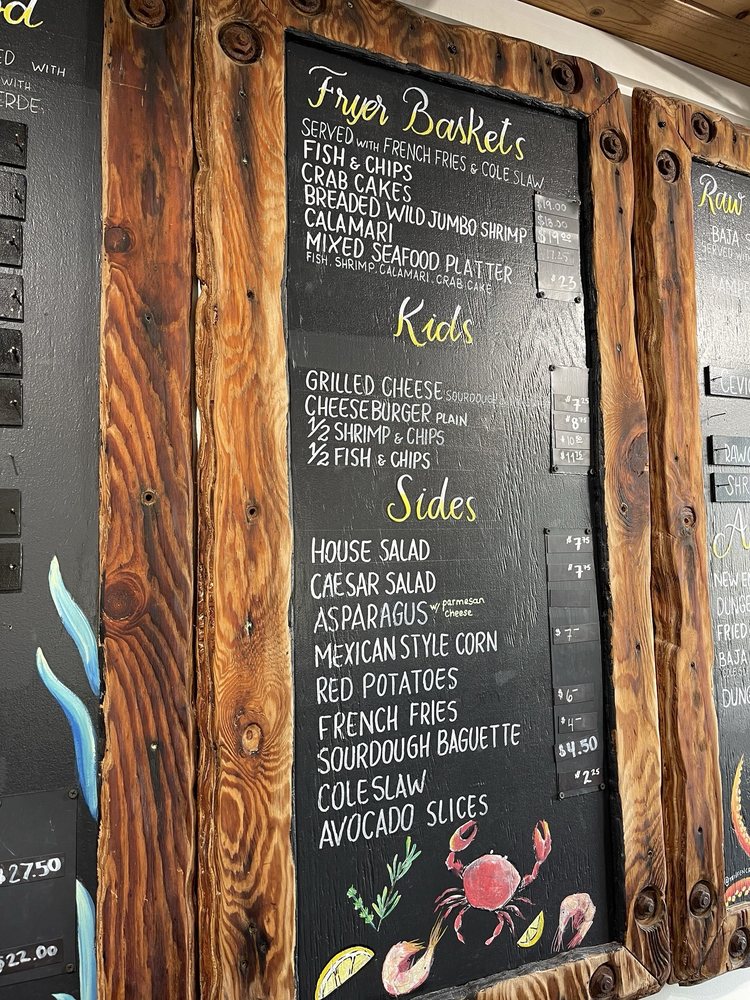 ED WITH
WITH
ERDE,
$27.50
$22.00
Fryer Baskets
SERVED WITH FRENCH FRIES & COLE SLAW
FISH & CHIPS $19.00
CRAB CAKES $18.00
BREADED WILD JUMBO SHRIMP $19.00
CALAMARI 17.25
MIXED SEAFOOD PLATTER $23
FISH, SHRIMP, CALAMARI, CRAB CAKE
Kids
GRILLED CHEESE SOURDOUGH $7.25
CHEESEBURGER PLAIN $8.75
1/2 SHRIMP & CHIPS $10.50
1/2 FISH & CHIPS $11.25
Sides
HOUSE SALAD $7.75
CAESAR SALAD $7.75
ASPARAGUS w/ parmesan cheese
MEXICAN STYLE CORN $7-
RED POTATOES
FRENCH FRIES $6-
SOURDOUGH BAGUETTE $4-
COLESLAW $4.50
AVOCADO SLICES $2.25
Raw
BAJA
SERVED
CEVI
SHR
NEW E
DUNG
FRIED
BAJA
DUN